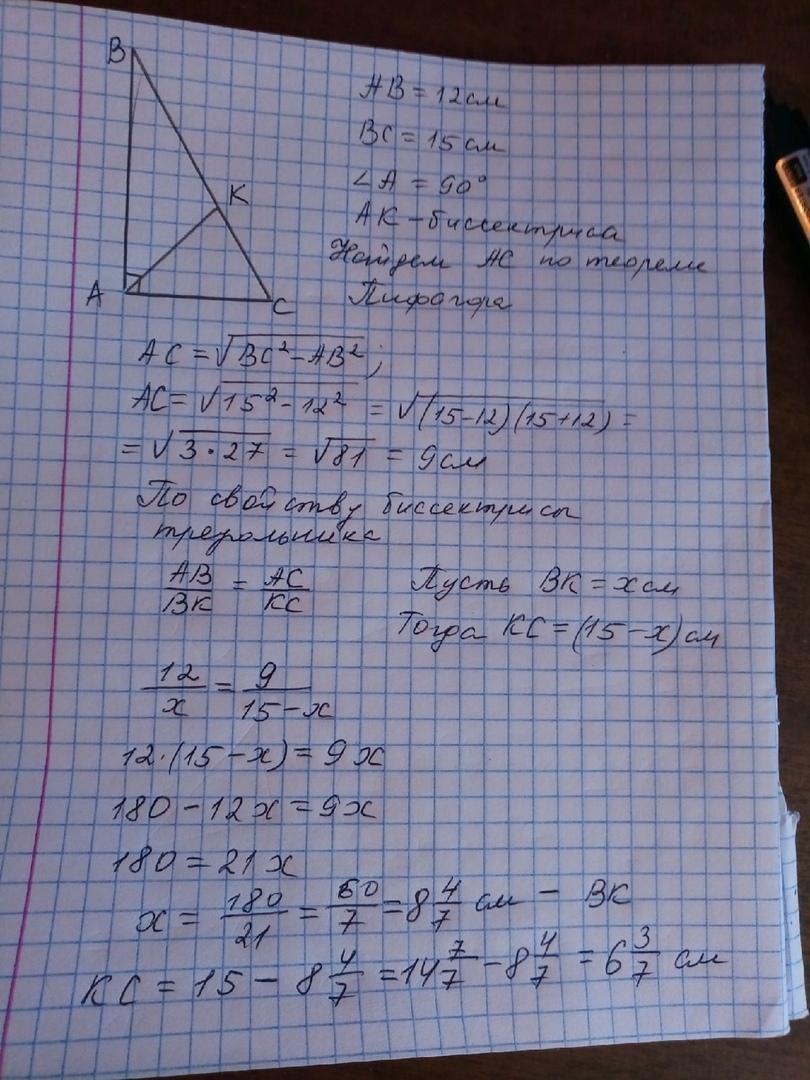 B
K
A
C
AB = 12см
BC = 15 см
∠A = 90°
AK – биссектриса
Найдем AC по теореме
Пифагора
AC = √(BC² – AB²);
AC = √(15² – 12²) = √((15–12)(15+12)) =
= √(3·27) = √81 = 9см
По свойству биссектрисы
треугольника
AB/BK = AC/KC
Пусть BK = x см
Тогда KC = (15 – x) см
12/x = 9/(15 – x)
12·(15 – x) = 9x
180 – 12x = 9x
180 = 21x
x = 180/21 = 60/7 = 8 4/7 см – BK
KC = 15 – 8 4/7 = 14 7/7 – 8 4/7 = 6 3/7 см